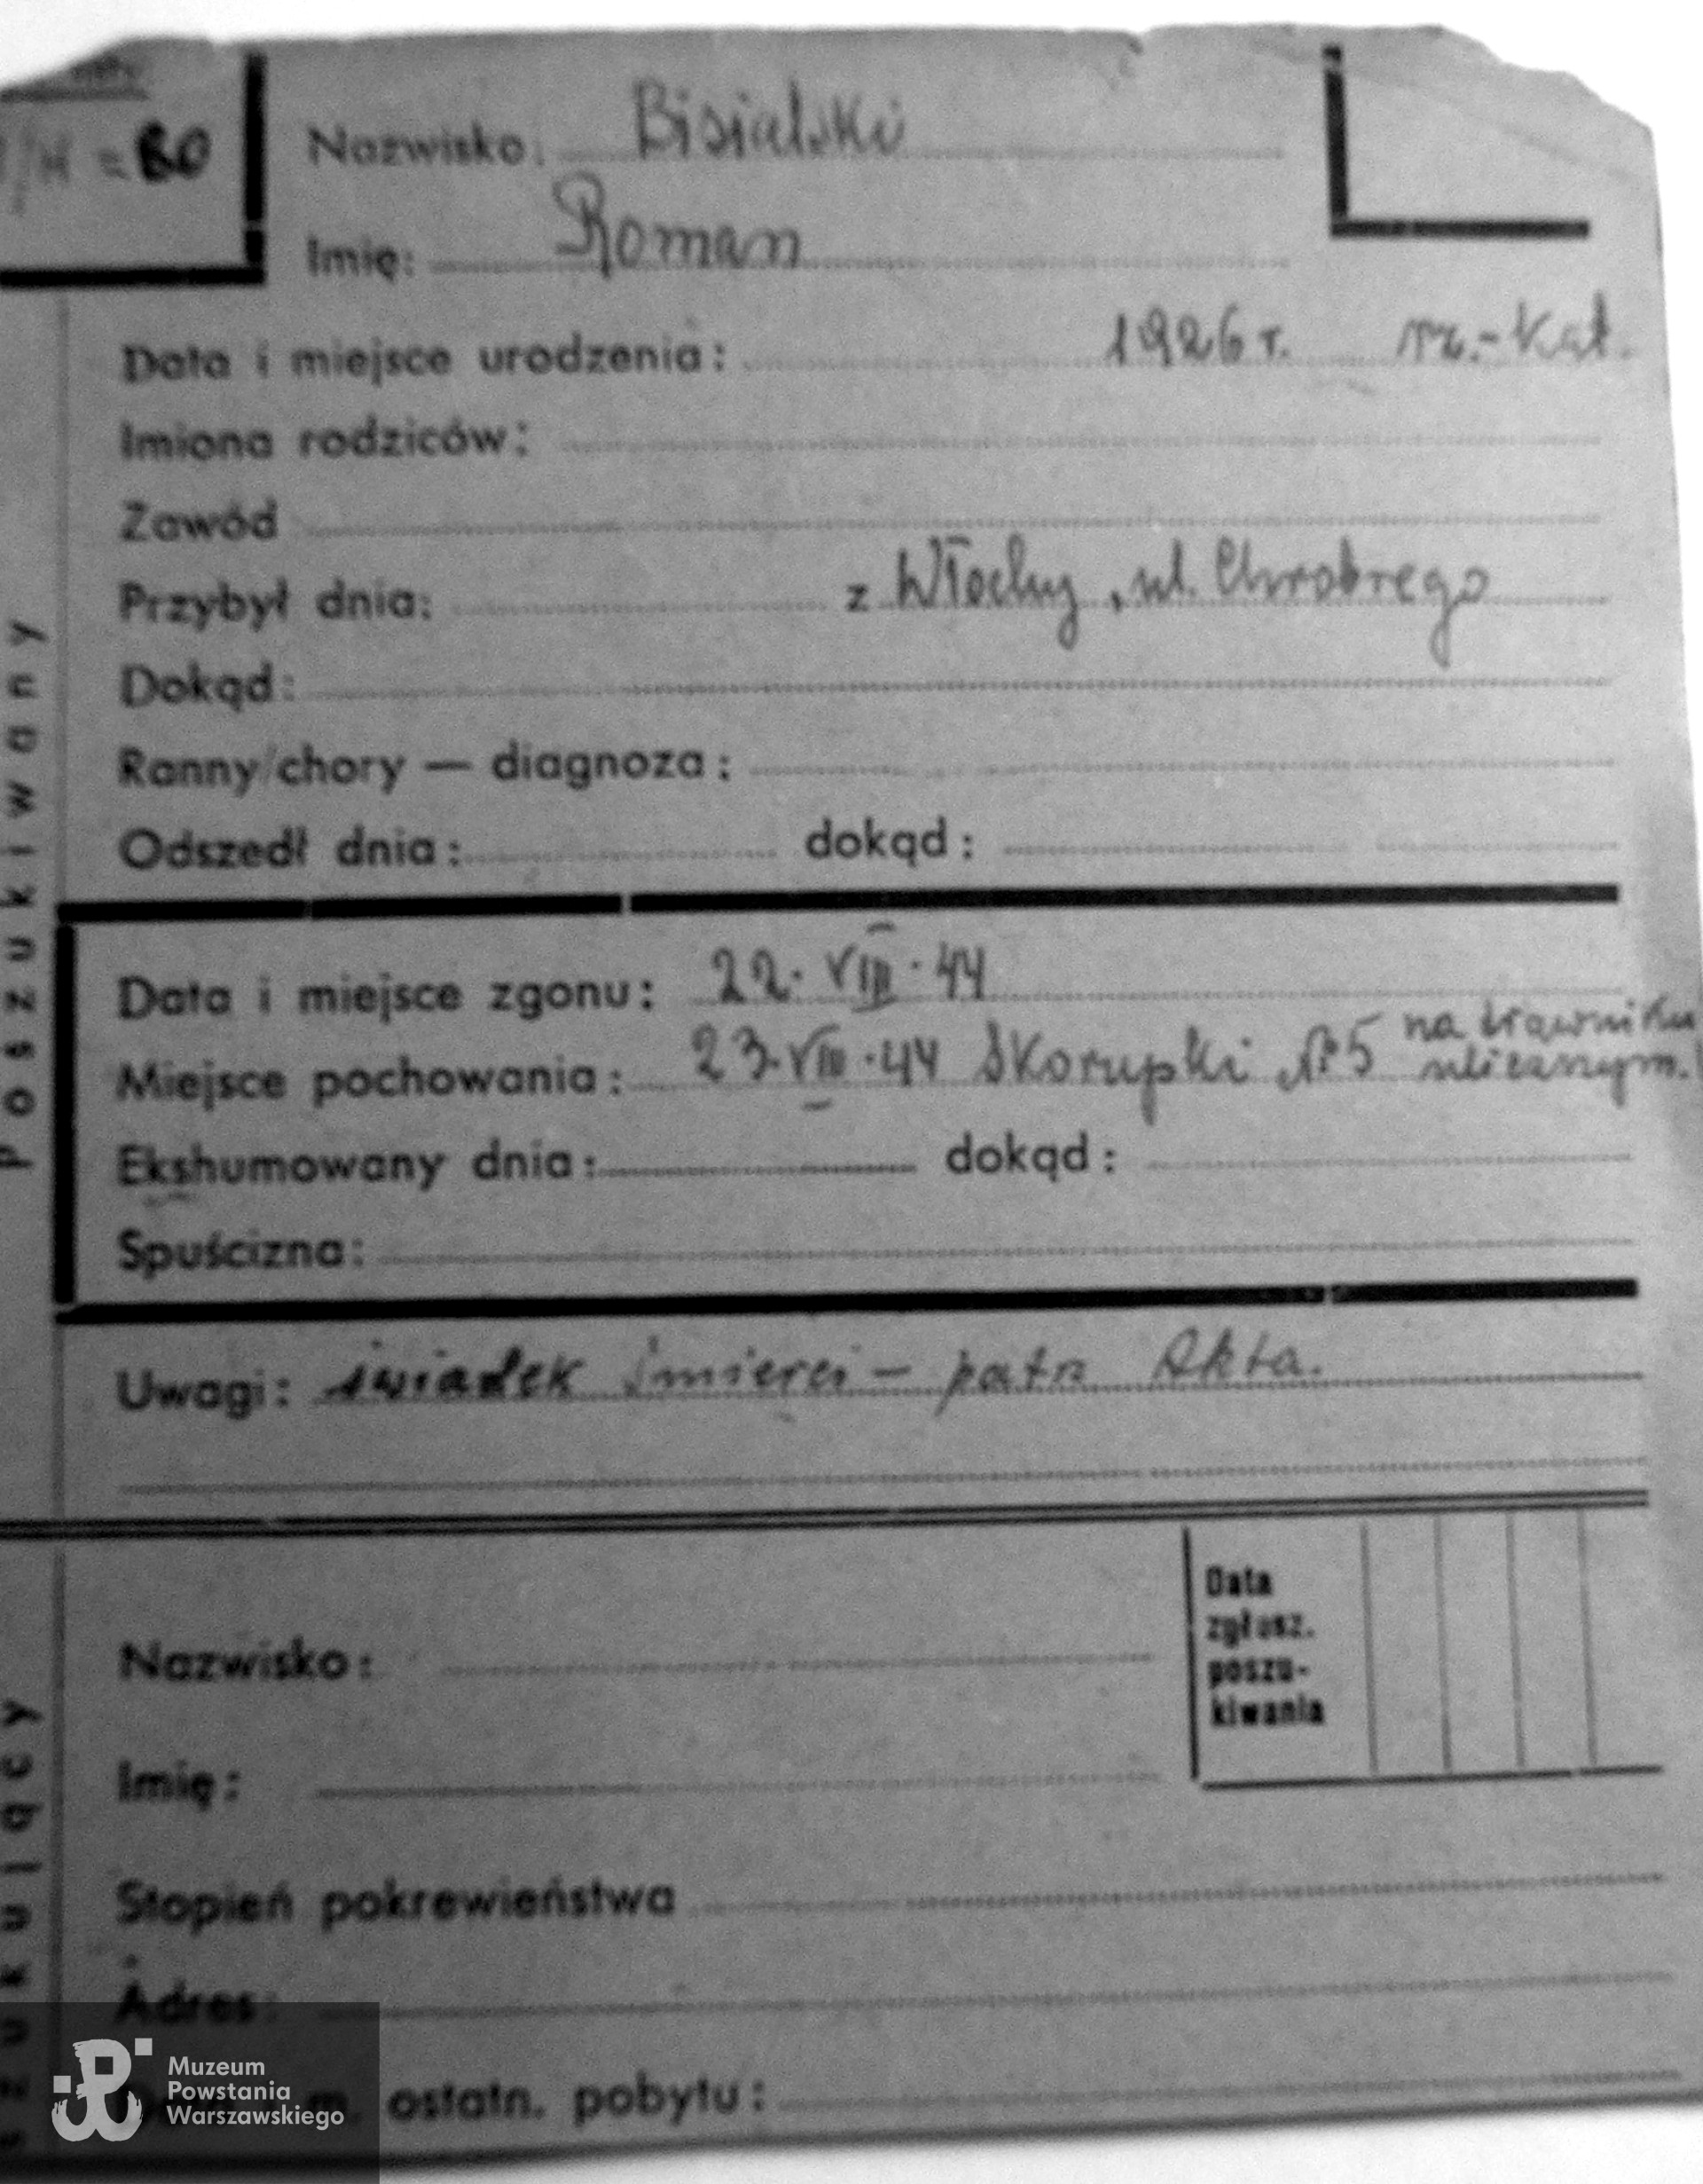 = 80
Nazwisko: Bisialski
Imię: Roman
Data i miejsce urodzenia: 1926 r. rz.-kat.
Imiona rodziców:
Zawód
Przybył dnia: z Włochy, ul. Chrobrego
Dokąd:
Ranny/chory — diagnoza:
Odszedł dnia: dokąd:
Data i miejsce zgonu: 22.VIII.44
Miejsce pochowania: 23.VIII.44 Skorupki № 5 na trawniku
ulicznym.
Ekshumowany dnia: dokąd:
Spuścizna:
Uwagi: świadek śmierci – patrz Akta.
Poszukiwany
Nazwisko:
Imię:
Data
zgłosz.
poszu-
kiwania
Stopień pokrewieństwa
Adres:
ostatn. pobytu:
Muzeum
Powstania
Warszawskiego